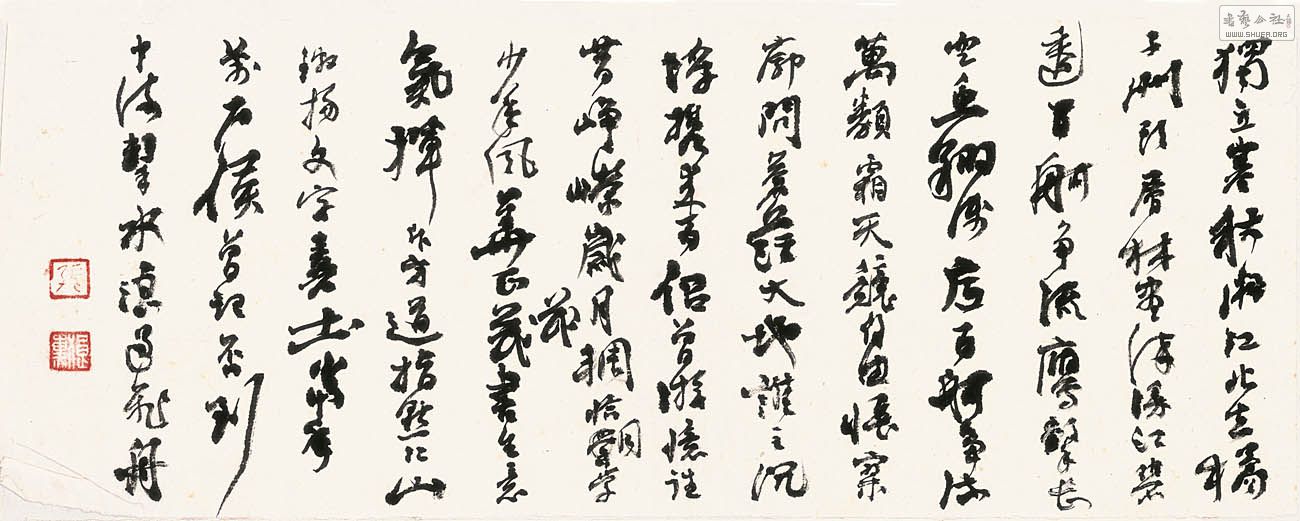 書藝公社
WWW.SHUFA.ORG
獨立寒秋湘江北去橘
子洲頭層林盡染漫江碧
透百舸爭流鷹擊長
空魚翔淺底百舸爭流
萬類霜天競自由悵寥
廓問蒼茫大地誰主沉
浮攜來百侶曾游憶往
昔崢嶸歲月稠恰同學
少年風華正茂書生意
氣揮斥方遒指點江山
激揚文字糞土當年
萬户侯曾記否到
中流擊水浪遏飛舟